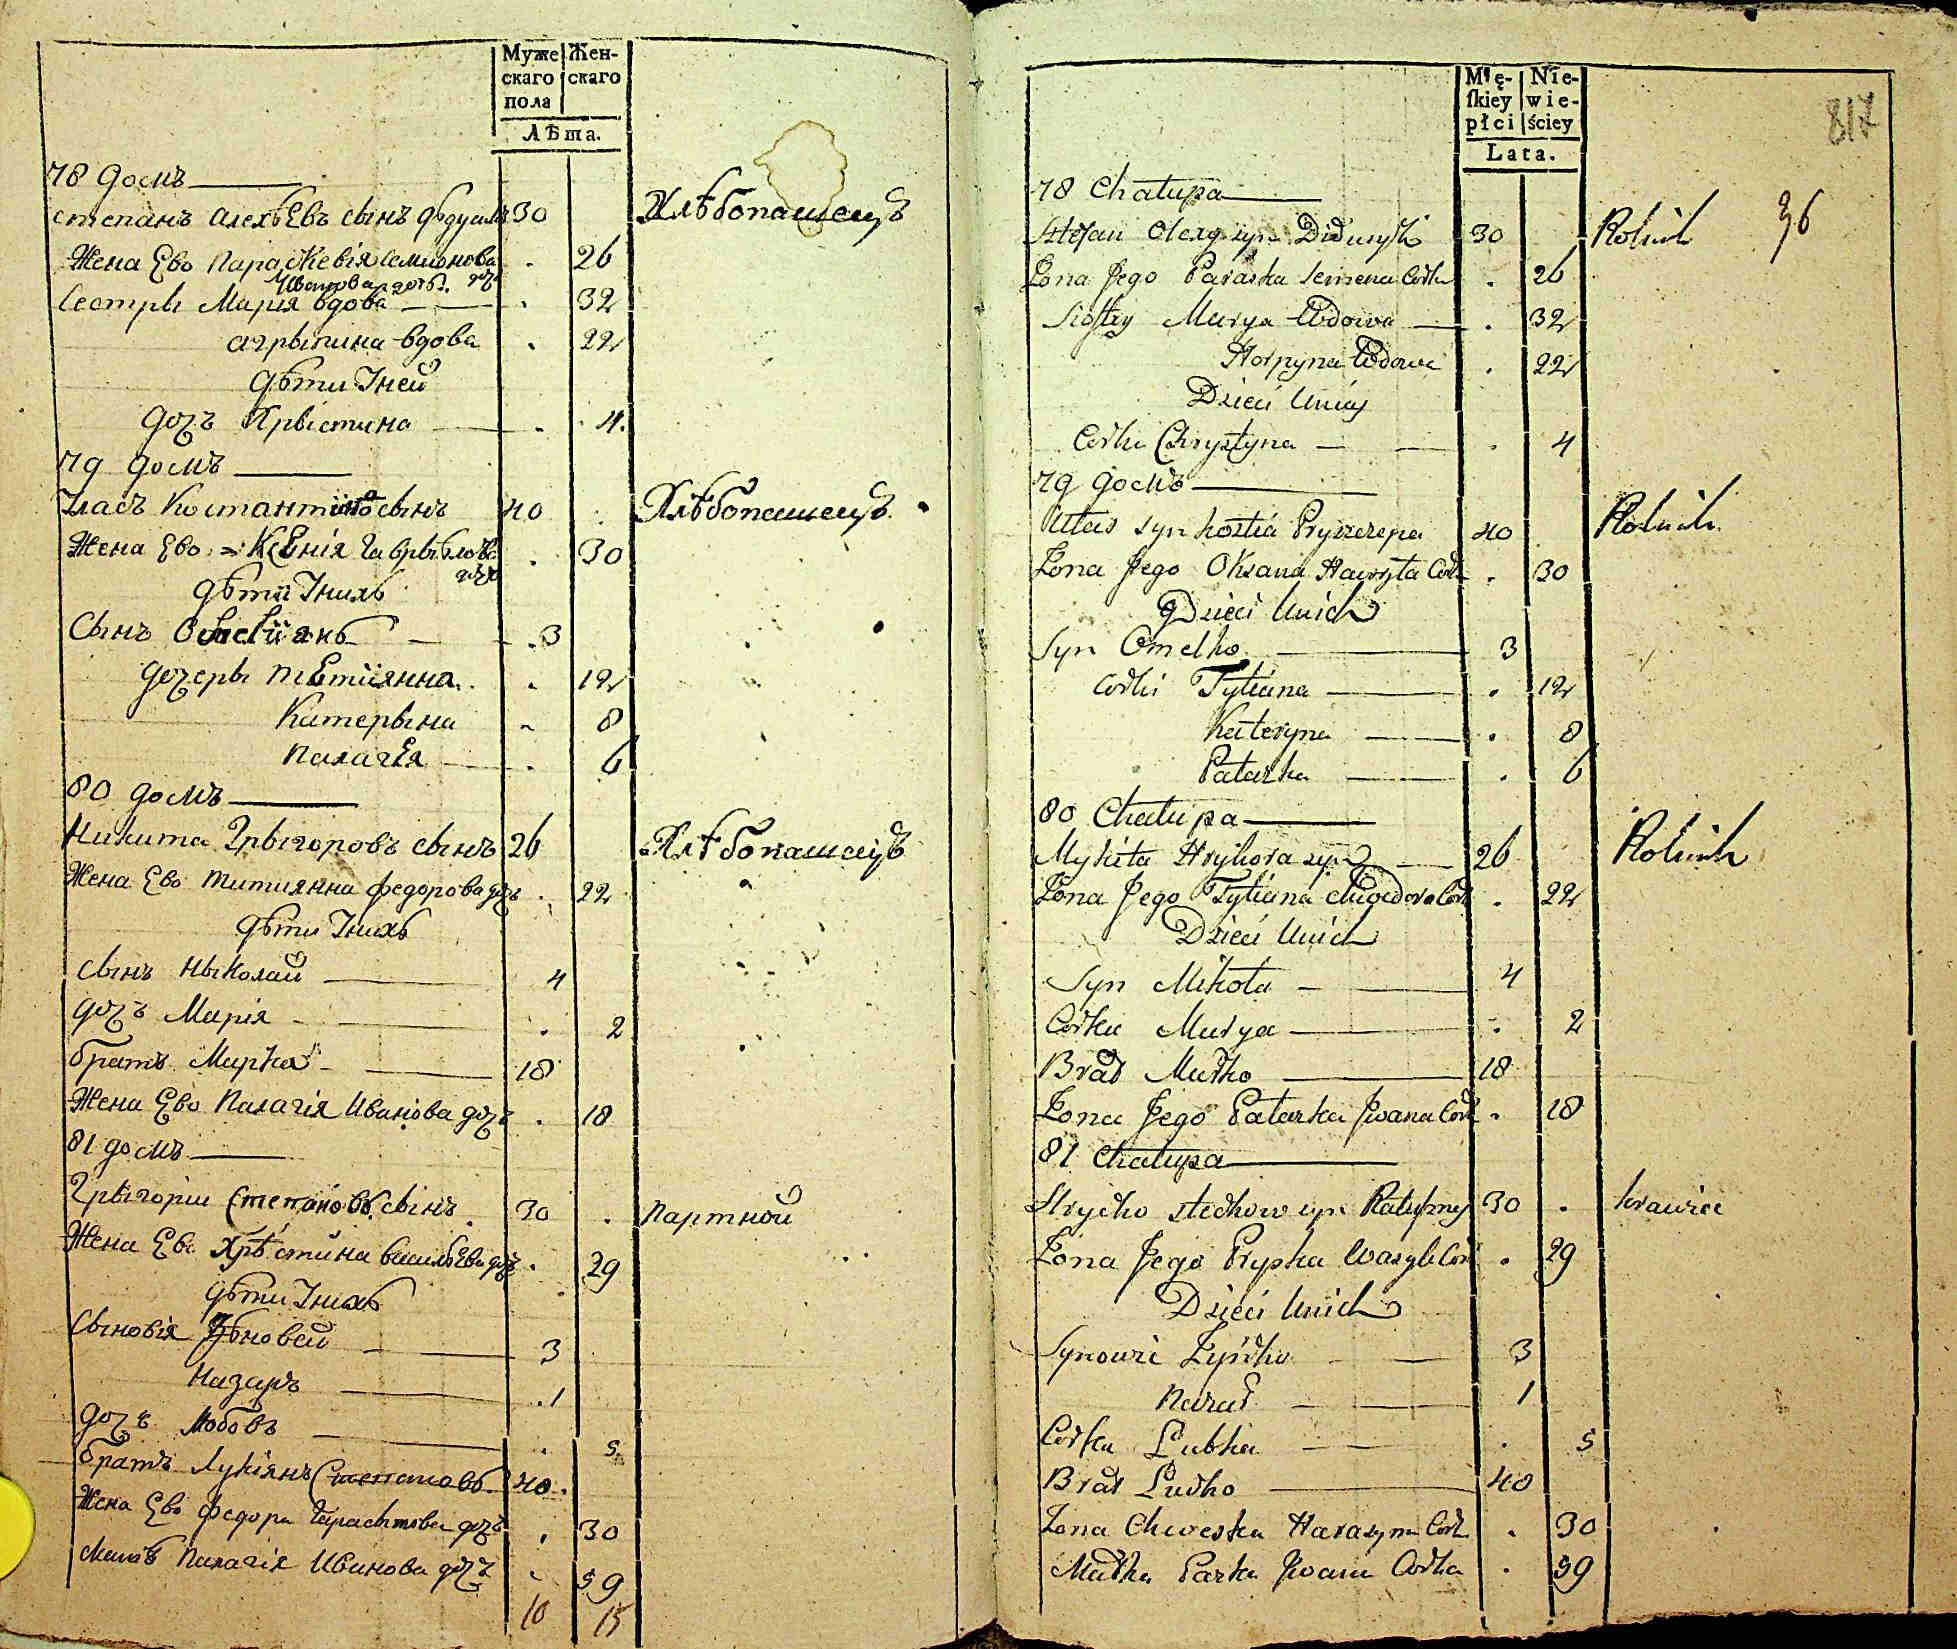 Муже Жен-
скаго скаго
пола
Лѣта.
78 домъ
степанъ алексѣЕвъ сынъ 30 Хлѣбопашецъ
Жена Ево параскевія семионова . 26
Ивановы
Сестры Марія вдова . 32
агрыпина вдова . 22
дѣти Уней
дочъ Хрыстина . 4.
79 домъ
Уласъ Костантиновъ сынъ 40 Хлѣбопашецъ
Жена Ево Ксѣнія Гаврылова . 30
дочъ
дѣти Унихъ
Сынъ . 3
дочеры тЕтіянна . 12
Катерына 8
палагЕя . 6
80 домъ
Никита Грыгоровъ сынъ 26 Хлѣбопашецъ
Жена Ево титиянна федорова дочъ . 22
дѣти Унихъ
сынъ ныколай 4
дочъ Марія . 2
братъ Марко 18
Жена Ево Палагія Иванова дочъ . 18
81 домъ
Грыгории Степановъ сынъ 30 . партной
Жена Ево Хрыстина василЕва дочъ . 29
дѣти Унихъ
Сыновія Зѣновей 3
назаръ . 1
дочъ любовъ . 5
братъ Лукіянъ Степановъ 40.
Жена Ево федора дочъ . 30
мать палагія Иванова дочъ 59
10 15
Mę- Nie-
skiey wie-
płci ściey
Lata.
817
78 Chałupa
Stefan Olexy syn 30 Rolnik 36
Żona Jego Paraska Semena Corka . 26
Siostry Marya Wdowa . 32
Horpyna Wdowa . 22
Dzieci Uniey
Corka Chrystyna 4
79 домъ
Ułas syn Kostia Pryszczepa 40 Rolnik
Żona Jego Oksana Hawryła Corka . 30
Dzieci Unich
Syn Omelko 3
Corki Tytiana . 12
Kateryna . 8
Pałazka . 6
80 Chałupa
Mykita Hryhora syn 26 Rolnik
Żona Jego Tytiana Chwedora Corka . 22
Dzieci Unich
Syn Mikoła 4
Corka Marya . 2
Brat Marko 18
Żona Jego Pałazka Jwana Corka . 18
81 Chałupa
Hryćko Stećkow syn Ratuszny 30 . krawiec
Żona Jego Pryśka Wasyla Corka . 29
Dzieci Unich
Synowie 3
Nazar 1
Corka Lubka . 5
Brat Lućko 40
Żona Chweśka Harasyma Corka . 30
Matka Pazka Jwana Corka . 59